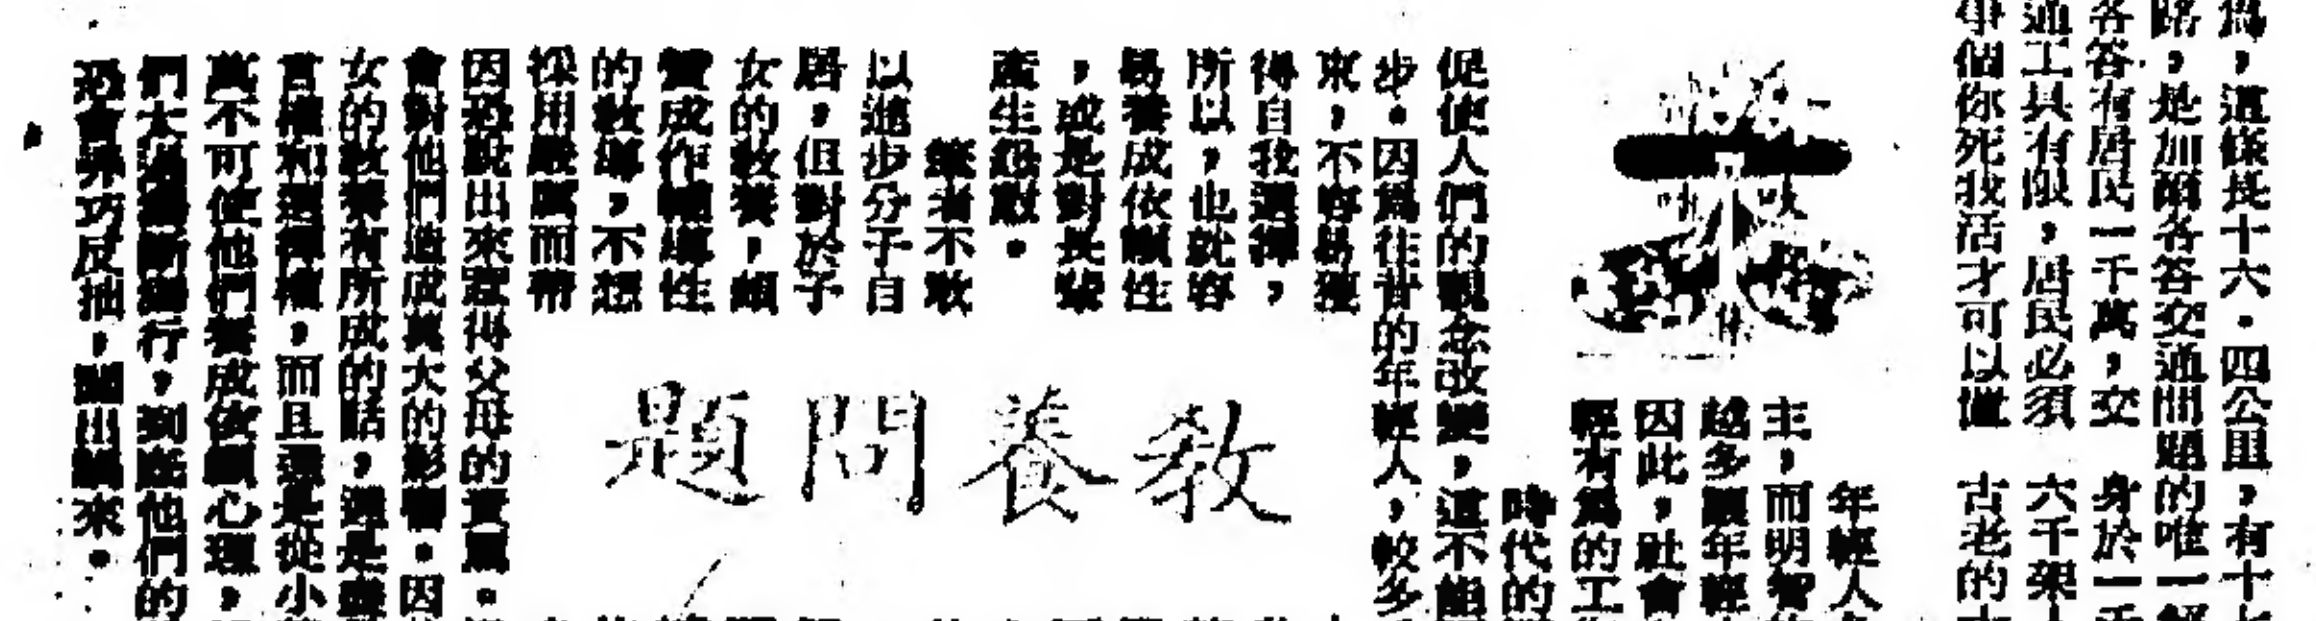 爲，這條長十六．四公里，有十七
路，是加爾各答交通問題的唯一解
各答有居民一千萬，交　身於一
通工具有限，居民必須　六千架
事個你死我活才可以　古老的
年輕人
主，而明智
越多願年輕
因此，社會
輕有爲的工
時代的
促使人們的觀念改變，這不能
步．因爲往昔的年輕人，較多
束，不容易獲
得自我選擇，
所以，也就容
易養成依賴性
，或是對長輩
產生怨懟．
筆者不敢
以進步分子自
居，但對於子
女的教養，頗
贊成作輔導性
的教導，不想
採用嚴厲而帶
教養問題
因恐說出來惹得父母的責罵．
會對他們造成莫大的影響．因
女的教養有所成的話，還是
言權和選擇權，而且還是從小
萬不可使他們養成依賴心理，
們太過獨斷獨行，到底他們的
恐會弄巧反拙，鬧出禍來．